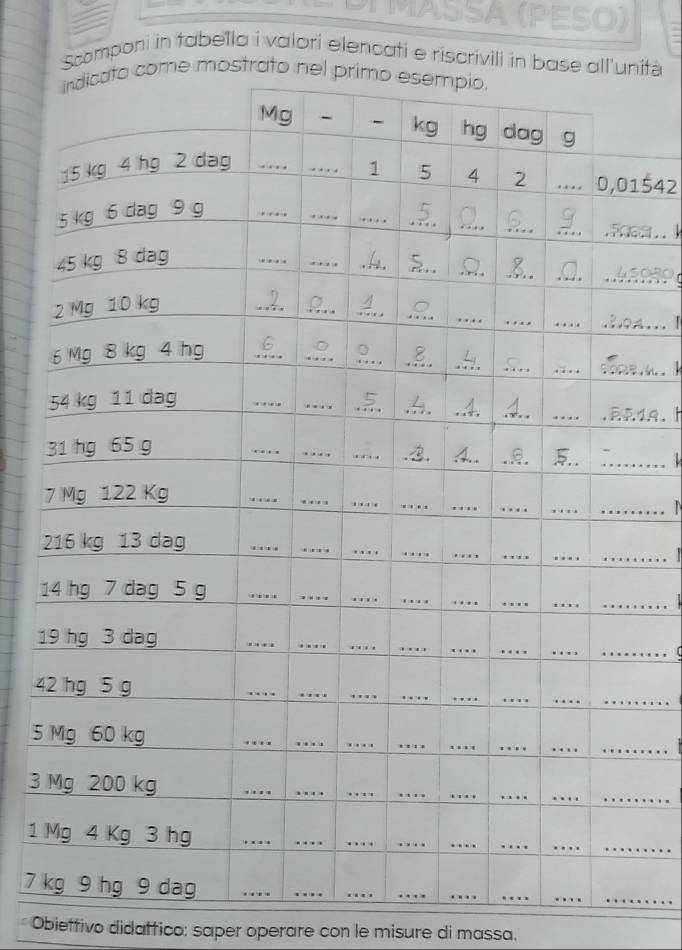 MASSA (PESO)
Scomponi in tabella i valori elencati e riscrivili in base all'unità
indicata come mostrato nel primo esempio.
Mg - - kg hg dag g
15 kg 4 hg 2 dag .... .... 1 5 4 2 .... 0,01542
5 kg 6 dag 9 g .... .... .... 5 0 6 9
45 kg 8 dag .... .... 4 5 0 8 0 45080
2 Mg 10 kg 2 0 1 0 .... .... ....
6 Mg 8 kg 4 hg 6 0 0 8 4 0 ....
54 kg 11 dag .... .... 5 4 1 1 ....
31 hg 65 g .... .... .... 3 1 6 5 .........
7 Mg 122 Kg .... .... .... .... .... .... .... .........
216 kg 13 dag .... .... .... .... .... .... .... .........
14 hg 7 dag 5 g .... .... .... .... .... .... .... .........
19 hg 3 dag .... .... .... .... .... .... .... .........
42 hg 5 g .... .... .... .... .... .... .... .........
5 Mg 60 kg .... .... .... .... .... .... .... .........
3 Mg 200 kg .... .... .... .... .... .... .... .........
1 Mg 4 Kg 3 hg .... .... .... .... .... .... .... .........
7 kg 9 hg 9 dag .... .... .... .... .... .... .... .........
Obiettivo didattico: saper operare con le misure di massa.